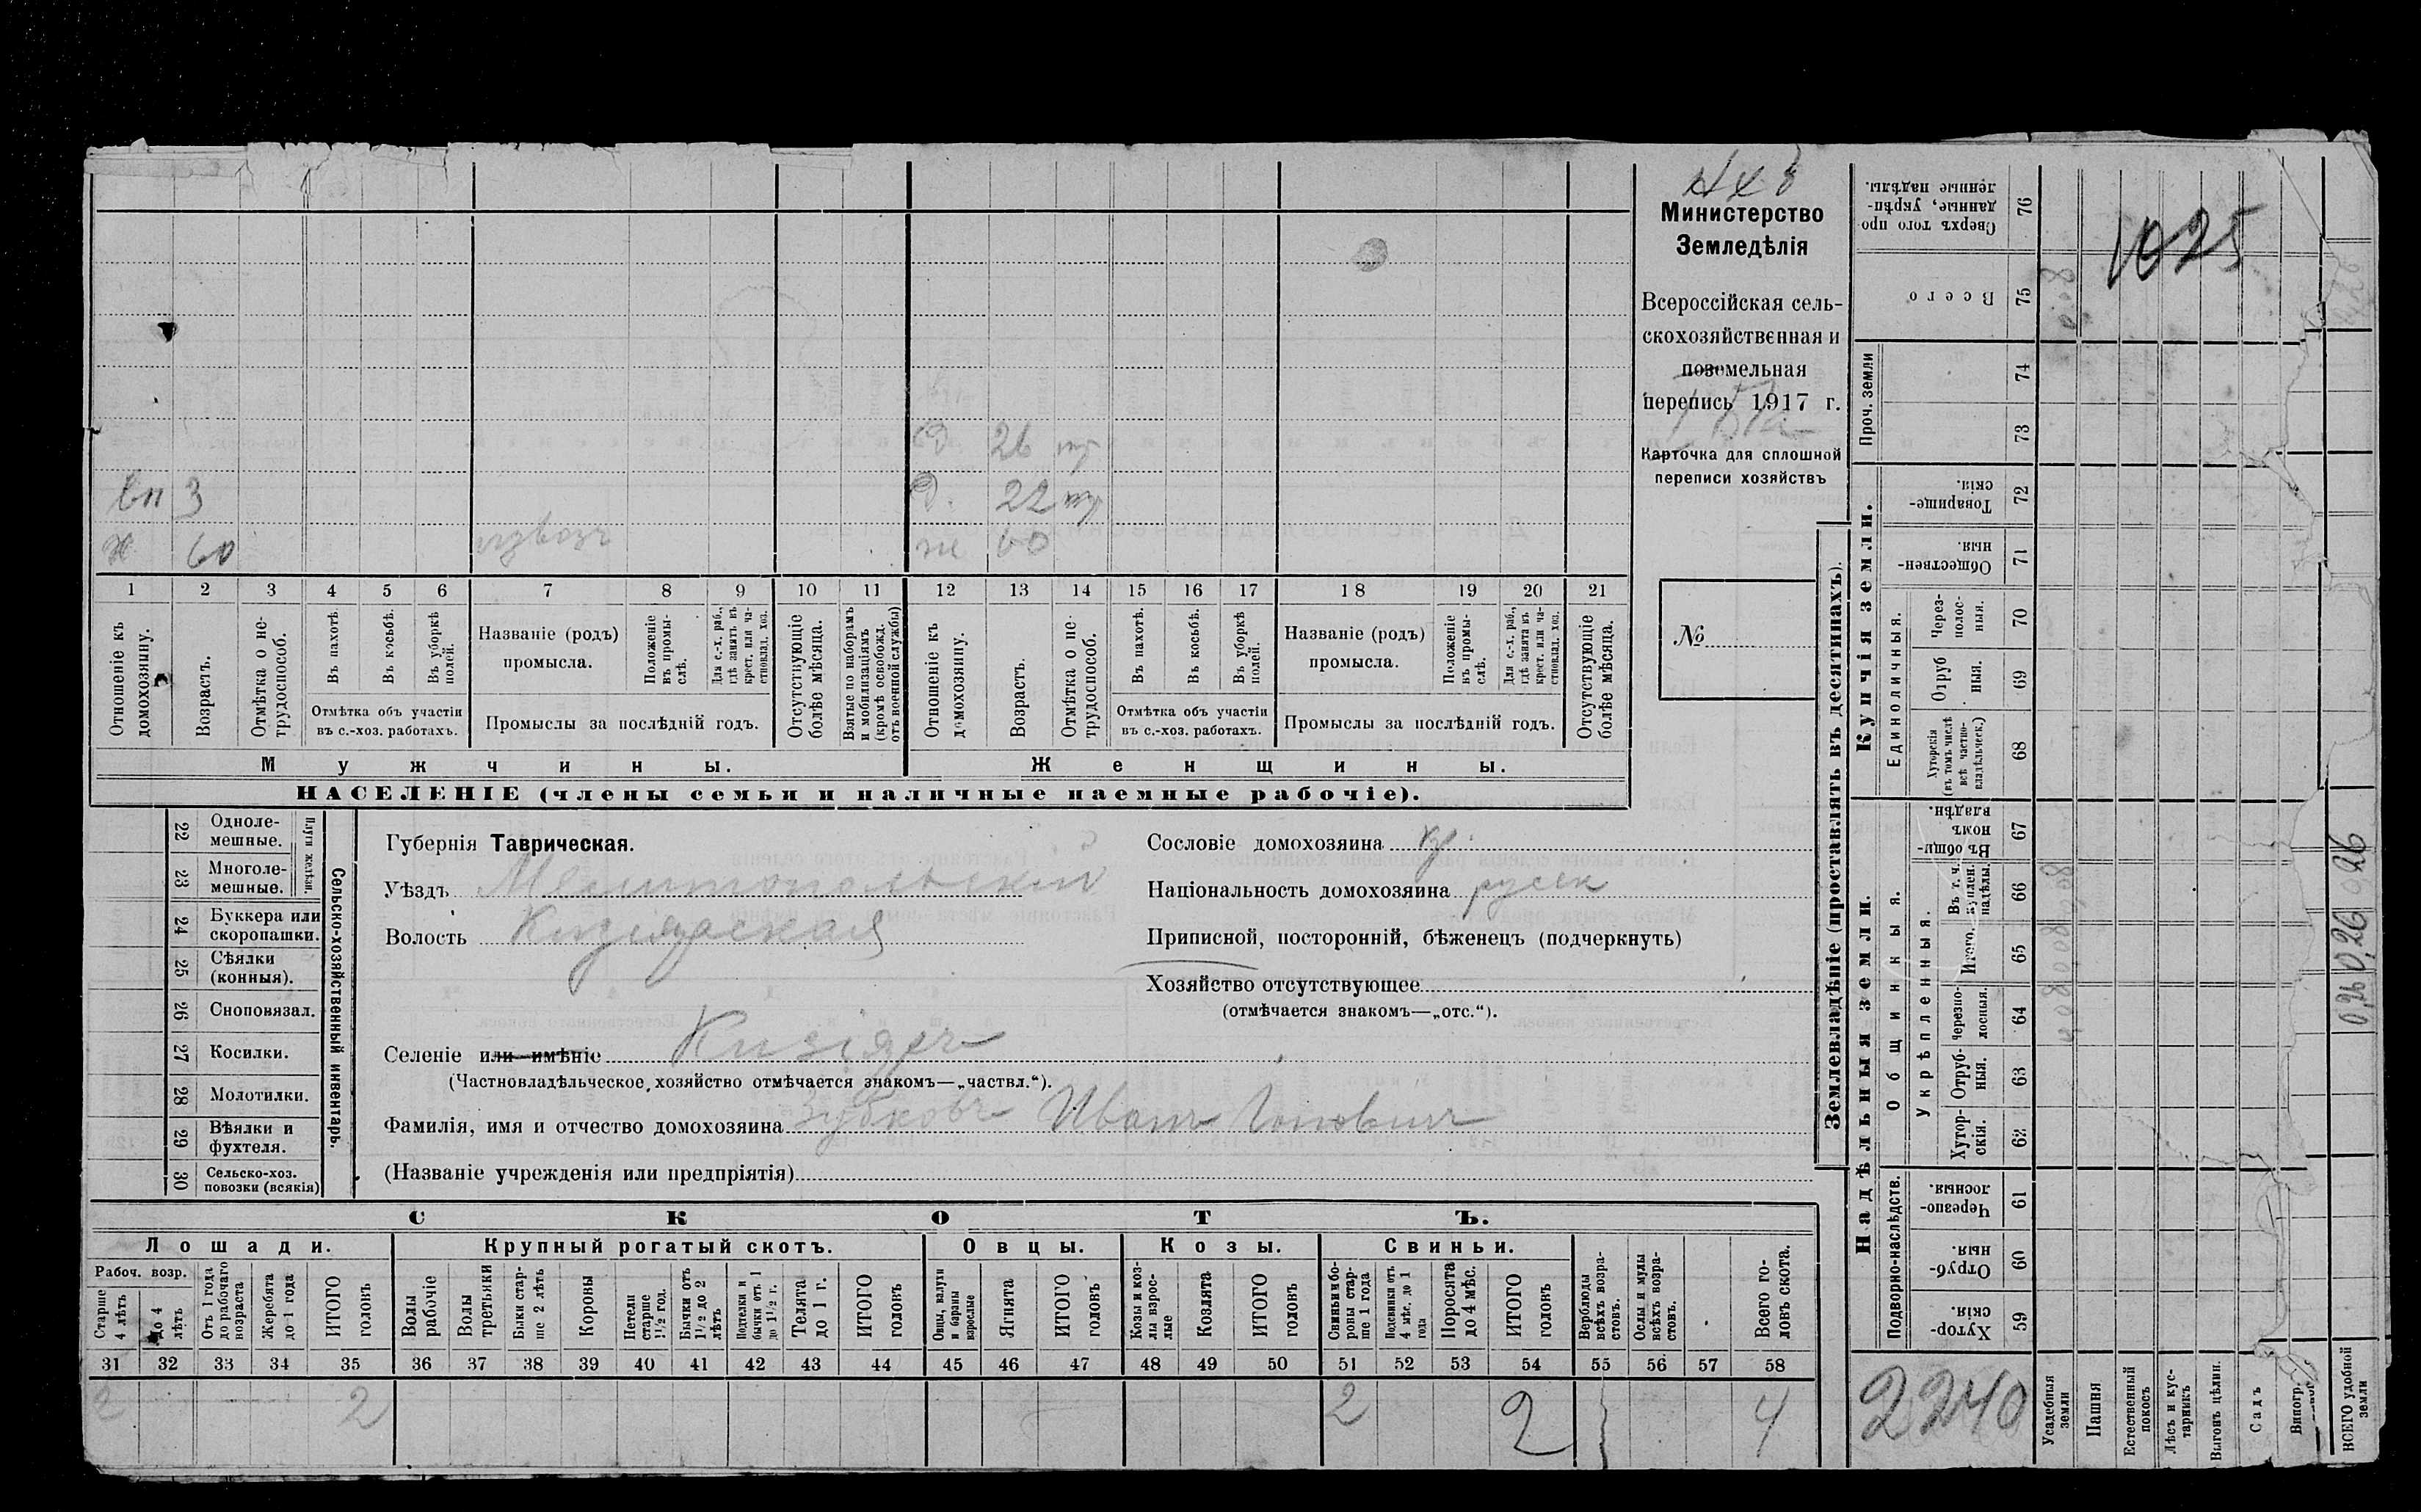 Министерство
Земледѣлія
Всероссійская сель-
скохозяйственная и
поземельная
перепись 1917 г.
Карточка для сплошной
переписи хозяйствъ
№
1025
д. 26 тр
вп 3
д. 22 тр
х 60 извозъ
ж 60
1 2 3 4 5 6 7 8 9 10 11 12 13 14 15 16 17 18 19 20 21
Отношеніе къ домохозяину.
Возрастъ.
Отмѣтка о не-трудоспособ.
Въ пахотѣ.
Въ косьбѣ.
Въ уборкѣ полей.
Отмѣтка объ участіи
въ с.-хоз. работахъ.
Названіе (родъ)
промысла.
Положеніе въ промы-слѣ.
Для с.-х. раб., гдѣ занятъ въ крест. или ча-стновлад. хоз.
Промыслы за послѣдній годъ.
Отсутствующіе болѣе мѣсяца.
Взятые по наборамъ и мобилизаціямъ (кромѣ освобожд. отъ военной службы)
Отношеніе къ домохозяину.
Возрастъ.
Отмѣтка о не-трудоспособ.
Въ пахотѣ.
Въ косьбѣ.
Въ уборкѣ полей.
Отмѣтка объ участіи
въ с.-хоз. работахъ.
Названіе (родъ)
промысла.
Положеніе въ промы-слѣ.
Для с.-х. раб., гдѣ занята въ крест. или ча-стновлад. хоз.
Промыслы за послѣдній годъ.
Отсутствующіе болѣе мѣсяца.
Мужчины.
Женщины.
НАСЕЛЕНІЕ (члены семьи и наличные наемные рабочіе).
Сельско-хозяйственный инвентарь.
Плуги желѣзн.
22 Одноле-мешные.
23 Многоле-мешные.
24 Буккера или скоропашки.
25 Сѣялки (конныя).
26 Сноповязал.
27 Косилки.
28 Молотилки.
29 Вѣялки и фухтеля.
30 Сельско-хоз. повозки (всякія)
Губернія Таврическая.
Уѣздъ Мелитопольскій
Волость Кизіярская
Сословіе домохозяина кр.
Національность домохозяина русск
Приписной, посторонній, бѣженецъ (подчеркнуть)
Хозяйство отсутствующее
(отмѣчается знакомъ—„отс.“).
Селеніе или имѣніе Кизіяръ
(Частновладѣльческое хозяйство отмѣчается знакомъ—„частвл.“).
Фамилія, имя и отчество домохозяина Зубковъ Иванъ
(Названіе учрежденія или предпріятія)
СКОТЪ.
Лошади. Крупный рогатый скотъ. Овцы. Козы. Свиньи.
Рабоч. возр.
Старше 4 лѣтъ
до 4 лѣтъ
Отъ 1 года до рабочаго возраста
Жеребята до 1 года
ИТОГО головъ
Волы рабочіе
Волы третьяки
Быки стар-ше 2 лѣтъ
Коровы
Нетели старше 1½ год.
Бычки отъ 1½ до 2 лѣтъ
Подтелки и бычки отъ 1 до 1½ г.
Телята до 1 г.
ИТОГО головъ
Овцы, валухи и бараны взрослые
Ягнята
ИТОГО головъ
Козы и коз-лы взрос-лые
Козлята
ИТОГО головъ
Свиньи и бо-ровы стар-ше 1 года
Подсвинки отъ 4 мѣс. до 1 года
Поросята до 4 мѣс.
ИТОГО головъ
Верблюды всѣхъ возра-стовъ.
Ослы и мулы всѣхъ возра-стовъ.
Всего го-ловъ скота.
31 32 33 34 35 36 37 38 39 40 41 42 43 44 45 46 47 48 49 50 51 52 53 54 55 56 57 58
2 2 2 2 4
Землевладѣніе (проставлять въ десятинахъ).
Надѣльныя земли.
Купчія земли.
Проч. земли
Подворно-наслѣдств.
Общинныя.
Укрѣпленныя.
Единоличныя.
76 Сверхъ того про-данные, укрѣп-ленные надѣлы.
75 Всего
74
73
72 Товарище-скія.
71 Обществен-ныя.
70 Через-полос-ныя.
69 Отруб-ныя.
68 Хуторскія (въ томъ числѣ всѣ частно-владѣльческ.)
67 Въ общи-номъ владѣн.
66 Въ т. ч. куплен. надѣлы.
65 Итого.
64 Черезпо-лосныя.
63 Отруб-ныя.
62 Хутор-скія.
61 Черезпо-лосныя.
60 Отруб-ныя.
59 Хутор-скія.
2240
Усадебныя земли
Пашня
Естественный покосъ
Лѣсъ и кус-тарникъ
Выгонъ цѣлин.
Садъ
Виногр.
ВСЕГО удобной земли
0,26 0,26 0,26